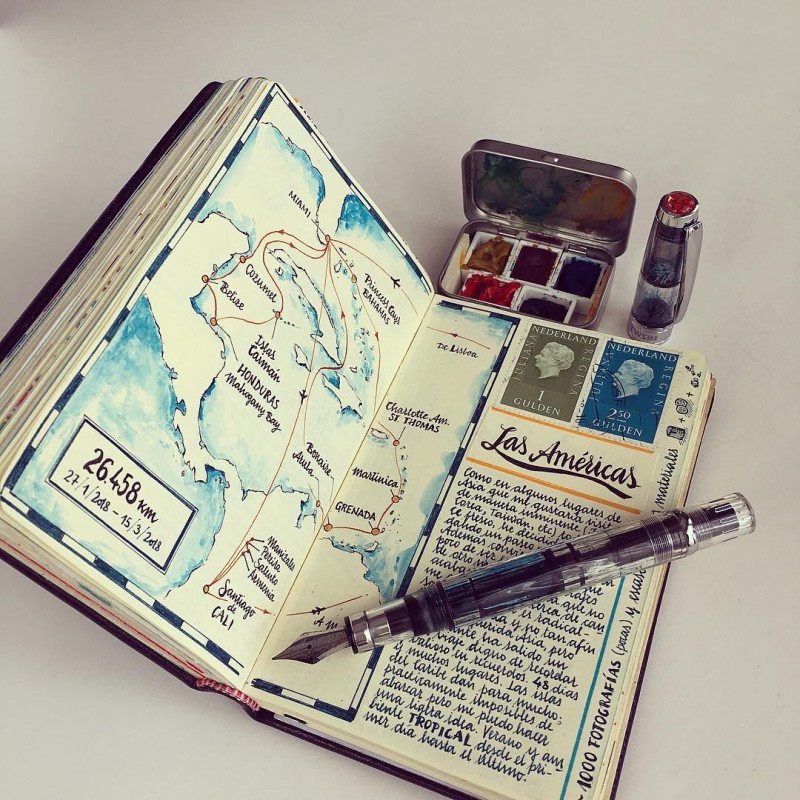 MIAMI
Cozumel
Belice
Princess Cays
BAHAMAS
Islas
Caimán
HONDURAS
Mahogany Bay
Bonaire
Aruba
26.458 km
27/1/2018 - 15/3/2018
Manizales
Pereira
Salento
Armenia
Santiago
de
CALI
De Lisboa
Charlotte Am.
ST. THOMAS
Martinica
GRENADA
NEDERLAND
JULIANA REGINA
1
GULDEN
NEDERLAND
JULIANA REGINA
2.50
GULDEN
Las Américas
Como en algunos lugares de
Asia que me gustaría visitar
de manera inminente
Corea, Taiwan, etc)
te fresco, he decidido
gando un paseo
poco de
Además
de otro
y no tan afín
Asia, pero
mente ha salido un
viaje digno de recordar
valioso en recuerdos. 48 días
y muchos lugares. Las islas
del Caribe dan para mucho;
prácticamente imposibles de
abarcar pero me puedo hacer
una ligera idea. Verano y am
biente TROPICAL desde el pri-
mer día hasta el último.
1000 FOTOGRAFÍAS (pocas) y
materiales